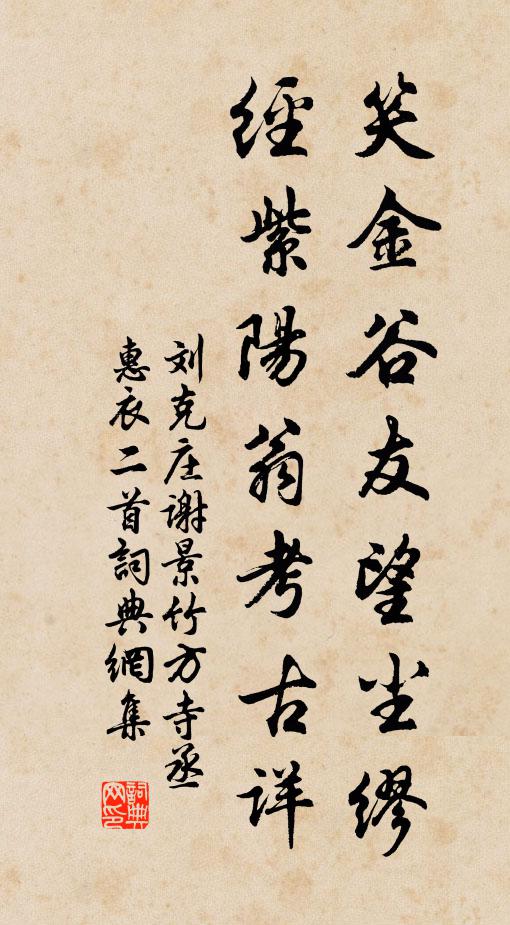 笑金谷友望尘缪
經紫陽翁考古详
刘克庄谢景竹方寺丞
惠衣二首詞典網集
詞典网印